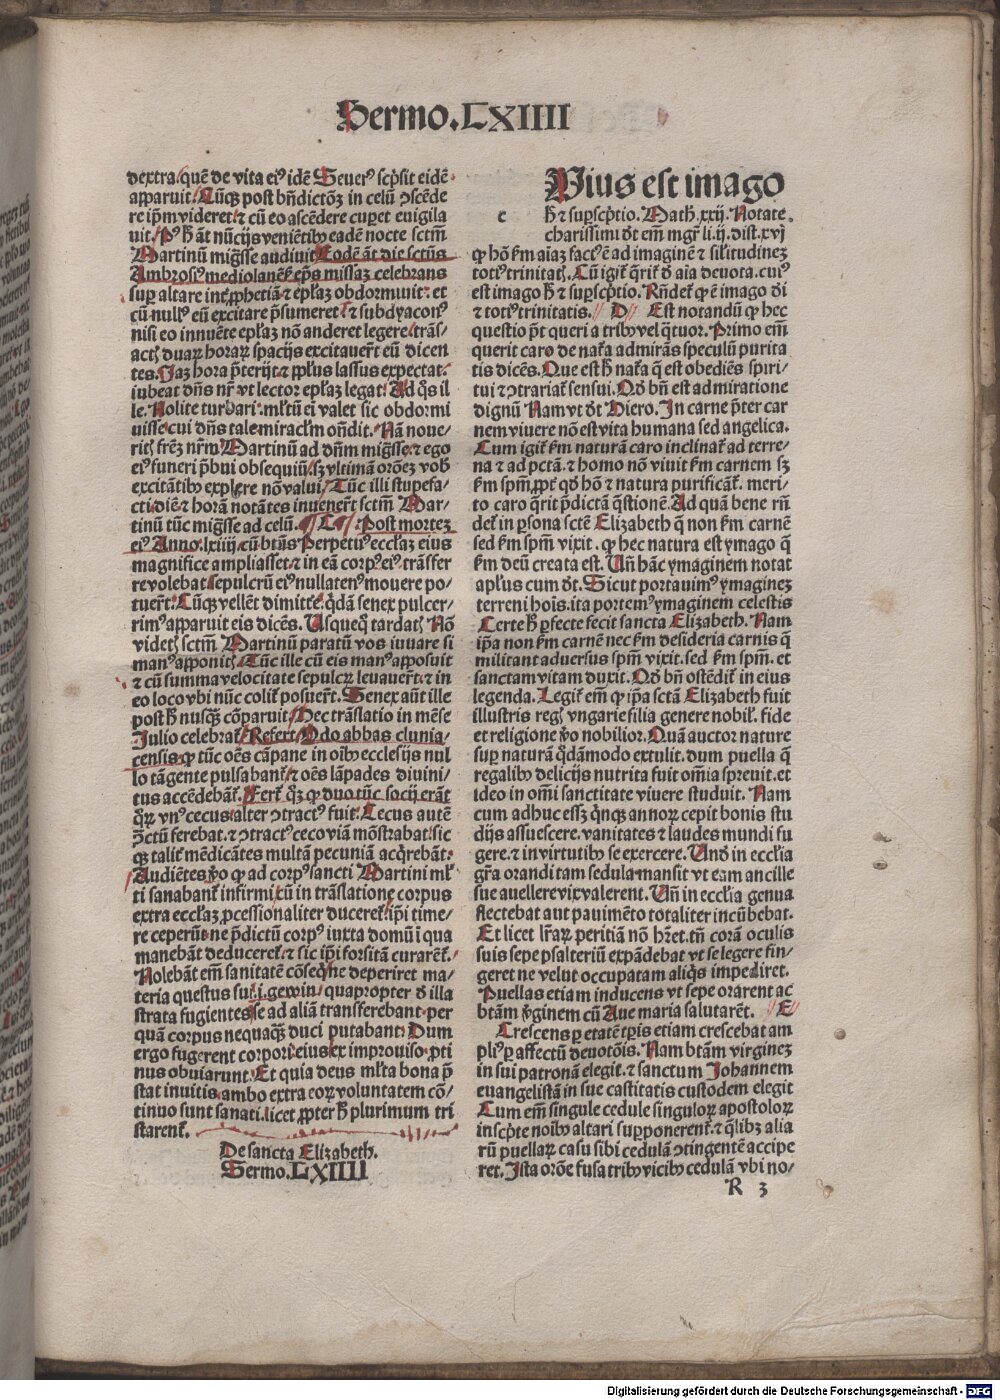 Sermo.LXIIII
dextra/quē de vita ei⁹ idē Seuer⁹ scp̄sit eidē
apparuit. Cūq; post bn̄dictōꝫ in celū ꝯscēde
re ip̄m videret/⁊ cū eo ascēdere cuꝑet euigila
uit. P⁹ ħ āt nūcijs veniētibꝰ eadē nocte sctm̄
Martinū migͣsse audiuit Eodē āt die sctūs
Ambrosi⁹ mediolanēs̄ ep̄s missaꝫ celebrans
suꝑ altare int̄ ꝓphetiā ⁊ ep̄laꝫ obdormiuit: et
cū null⁹ eū excitare p̄sumeret/⁊ subdyacon⁹
nisi eo innuēte ep̄laꝫ nō anderet legere/trās/
actꝭ duaꝝ horaꝝ spacijs excitauerūt eū dicen
tes. Jaꝫ hora p̄terijt ⁊ ppl̄us lassus expectat.
iubeat dn̄s nr̄ vt lector ep̄laꝫ legat. Ad q̄s il
le. Nolite turbari. ml̄tū eī valet sic obdormi
uisse cui dn̄s tale miraclm̄ on̄dit. Nā noue/
ritꝭ frēꝫ nr̄m Martinū ad dn̄m migͣsse. ⁊ ego
ei⁹ funeri p̄bui obsequiū/sꝫ vltimā orōeꝫ vob̄
excitātibꝰ explere nō valui/Tūc illi stupefa/
cti diē ⁊ horā notātes inuenert̄ sctm̄ Mar/
tinū tūc migͣsse ad celū. C Post morteꝫ
ei⁹ Anno.lxiiij cū bt̄ūs Perpetu⁹ eccl̄aꝫ eius
magnifice ampliasset ⁊ in eā corp⁹ ei⁹ trāsfer
re volebat sepulcrū ei⁹ nullaten⁹ mouere po/
tuert̄. Cūq; vellēt dimittē. q̄dā senex pulcer/
rim⁹ apparuit eis dicēs. Usqueq̄ tardatꝭ Nō
videtꝭ sctm̄ Martinū paratū vos iuuare si
man⁹ apponitꝭ Tūc ille cū eis man⁹ apposuit
⁊ cū summa velocitate sepulcꝝ leuauert̄. ⁊ in
eo loco vbi nūc colit̄ posuert̄. Senex aūt ille
post ħ nusq̄ꝫ cōparuit Hec trāslatio in mēse
Julio celebrat̄ Refert Odo abbas clunia/
censis ꝙ tūc oēs cāpane in oībꝰ ecclesijs nul
lo tāgente pulsabant̄/⁊ oēs lāpades diuini/
tus accēdebāt̄. Fert̄ q̄ꝫ ꝙ duo tūc socij erāt
q̄ꝝ vn⁹ cecus alter ꝯtract⁹ fuit. Cecus autē
ꝯctū ferebat. ⁊ ꝯtract⁹ ceco viā mōstrabat. sic
q; talit̄ mēdicātes multā pecuniā acq̄rebāt:
Audiētes v̄o ꝙ ad corp⁹ sancti Martini ml̄
ti sanabant̄ infirmi/cū in trāslatione corpus
extra eccl̄aꝫ ꝓcessionaliter duceret̄. ip̄i time/
re ceperūt ne p̄dictū corp⁹ iuxta domū ī qua
manebāt deduceret̄. ⁊ sic ip̄i forsitā curarēt̄.
Nolebāt em̄ sanitatē cōseq̄/ne deperiret ma/
teria questus sui.i.gewin/quapropter d̄ illa
strata fugientes se ad aliā transferebant. per
quā corpus nequaq̄ꝫ duci putabant. Dum
ergo fugerent corpori eius ex improuiso ꝓti
nus obuiarunt. Et quia deus ml̄ta bona p̄
stat inuitis. ambo extra eoꝝ voluntatem cō/
tinuo sunt sanati. licet ꝓpter ħ plurimum tri
starent̄.
De sancta Elizabeth.
Sermo.LXIIII
Uius est imago
c ħ ⁊ suꝑscp̄tio. Math̄. xxij. Notate
charissimi d̄t em̄ mgr̄ li.ij.dist.xvj
ꝙ hō s̄m aīaꝫ fact⁹ ē ad imaginē ⁊ sil̄itudineꝫ
toti⁹ trinitatꝭ. Cū igit̄ q̄rit̄ d̄ aīa deuota. cui⁹
est imago ħ ⁊ suꝑscp̄tio. Rn̄det̄ ꝙ ē imago di
⁊ toti⁹ trinitatis. D Est notandū ꝙ hec
questio p̄t queri a tribꝰ vel q̄tuor. Primo em̄
querit caro de nat̄a admirās speculū purita
tis dicēs. Que est ħ nat̄a q̄ est obediēs spiri/
tui ⁊ ꝯtrariat̄ sensui. Qd̄ bn̄ est admiratione
dignū Nam vt d̄t Hiero. In carne p̄ter car
nem viuere nō est vita humana sed angelica.
Cum igit̄ s̄m naturā caro inclinat̄ ad terre/
na ⁊ ad pctā. ⁊ homo nō viuit s̄m carnem sꝫ
s̄m spm̄. ꝓpt̄ qd̄ hō ⁊ natura purificat̄. meri/
to caro q̄rit p̄dictā q̄stionē. Ad quā bene rn̄
det̄ in ꝑsona sctē Elizabeth q̄ non s̄m carnē
sed s̄m spm̄ vixit. ꝙ hec natura est ymago q̄
s̄m deū creata est. Un̄ hāc ymaginem notat
apl̄us cum d̄t. Sicut portauim⁹ ymagineꝫ
terreni hoīs. ita portem⁹ ymaginem celestis
Certe ħ ꝑfecte fecit sancta Elizabeth. Nam
ip̄a non s̄m carnē nec s̄m desideria carnis q̄
militant aduersus spm̄ vixit. sed s̄m spm̄. et
sanctam vitam duxit. Qd̄ bn̄ ostēdit̄ in eius
legenda. Legit̄ em̄ ꝙ ip̄a sctā Elizabeth fuit
illustris regꝭ vngarie filia genere nobil̄. fide
et religione v̄o nobilior. Quā auctor nature
suꝑ naturā q̄dāmodo extulit. dum puella q̄
regalibꝰ delicijs nutrita fuit om̄ia spreuit. et
ideo in om̄i sanctitate viuere studuit. Nam
cum adhuc essꝫ q̄nq; annoꝝ cepit bonis stu
dijs assuescere. vanitates ⁊ laudes mundi fu
gere. ⁊ in virtutibꝰ se exercere. Und̄ in eccl̄ia
gr̄a orandi tam sedula mansit vt eam ancille
sue auellere vix valerent. Un̄ in eccl̄ia genua
flectebat aut pauimēto totaliter incūbebat.
Et licet lr̄aꝝ peritiā nō hr̄et. tn̄ corā oculis
suis sepe psalteriū expādebat vt se legere fin/
geret ne velut occupatam aliq̄s impediret.
Puellas etiam inducens vt sepe orarent ac
btām v̄ginem cū Aue maria salutarēt. E
Crescens ꝑ etatē tp̄is etiam crescebat am
pli⁹ ꝑ affectū deuotōis. Nam btām virgineꝫ
in sui patronā elegit. ⁊ sanctum Johannem
euangelistā in sue castitatis custodem elegit
Cum em̄ singule cedule singuloꝝ apostoloꝝ
inscp̄te noībꝰ altari supponerent̄. ⁊ q̄libꝫ alia
rū puellaꝝ casu sibi cedulā ꝯtingentē accipe
ret. Ista orōe fusa tribꝰ vicibꝰ cedulā vbi no/
R 3
Digitalisierung gefördert durch die Deutsche Forschungsgemeinschaft - DFG